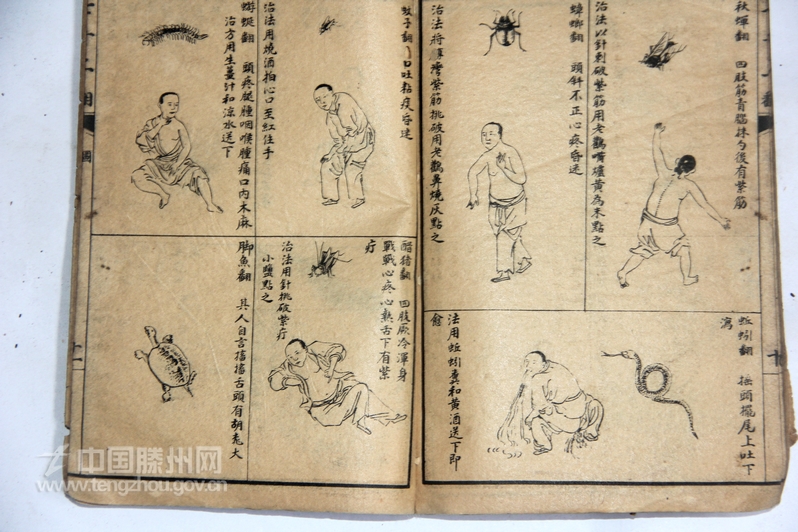 四肢筋青腦抹勺後有紫筋
治法以針刺破紫筋用老鸛嘴爐黃為末點之
蟑螂翻 頭斜不正心疼昏迷
治法將紫筋挑破用老鸛鼻燒灰點之
蚯蚓翻 搖頭擺尾上吐下
瀉
法用蚯蚓糞和黃酒送下即
愈
蚊子翻 口吐黏痰昏迷
治法用燒酒拍心口至紅住手
蝣蜒翻 頭疼腿腫咽喉腫痛口內木麻
治方用生薑汁和涼水送下
醋猪翻 四肢厥冷渾身
戰戰心疼心熱舌下有紫
疔
治法用針挑破紫疔
小鹽點之
脚魚翻 其人自言搐搐舌頭有胡羗大
中国滕州网
www.tengzhou.gov.cn